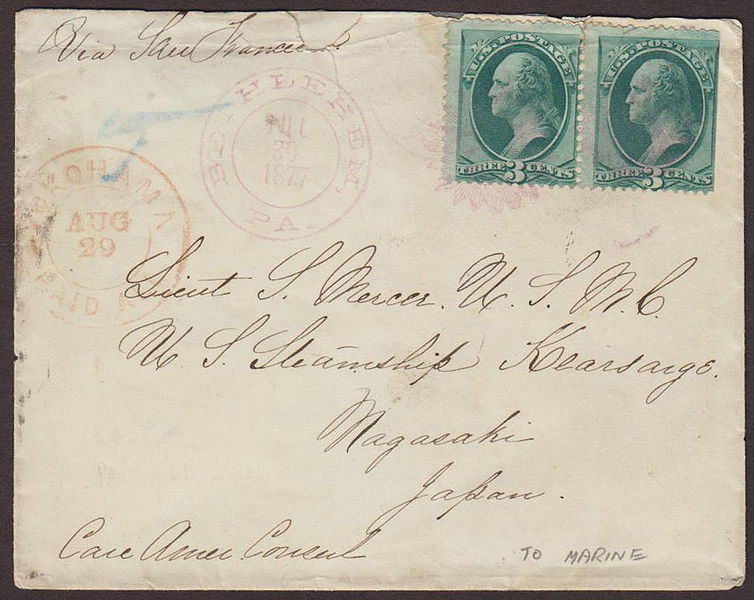 Via San Francisco
U.S. POSTAGE
THREE 3 CENTS
U.S. POSTAGE
THREE 3 CENTS
BETHLEHEM
JUL
1877
PA.
YOKOHAMA
AUG
29
PAID
Lieut S. Mercer. U. S. M. C.
U. S. Steamship Kearsarge.
Nagasaki
Japan.
Care Amer Consul
TO MARINE